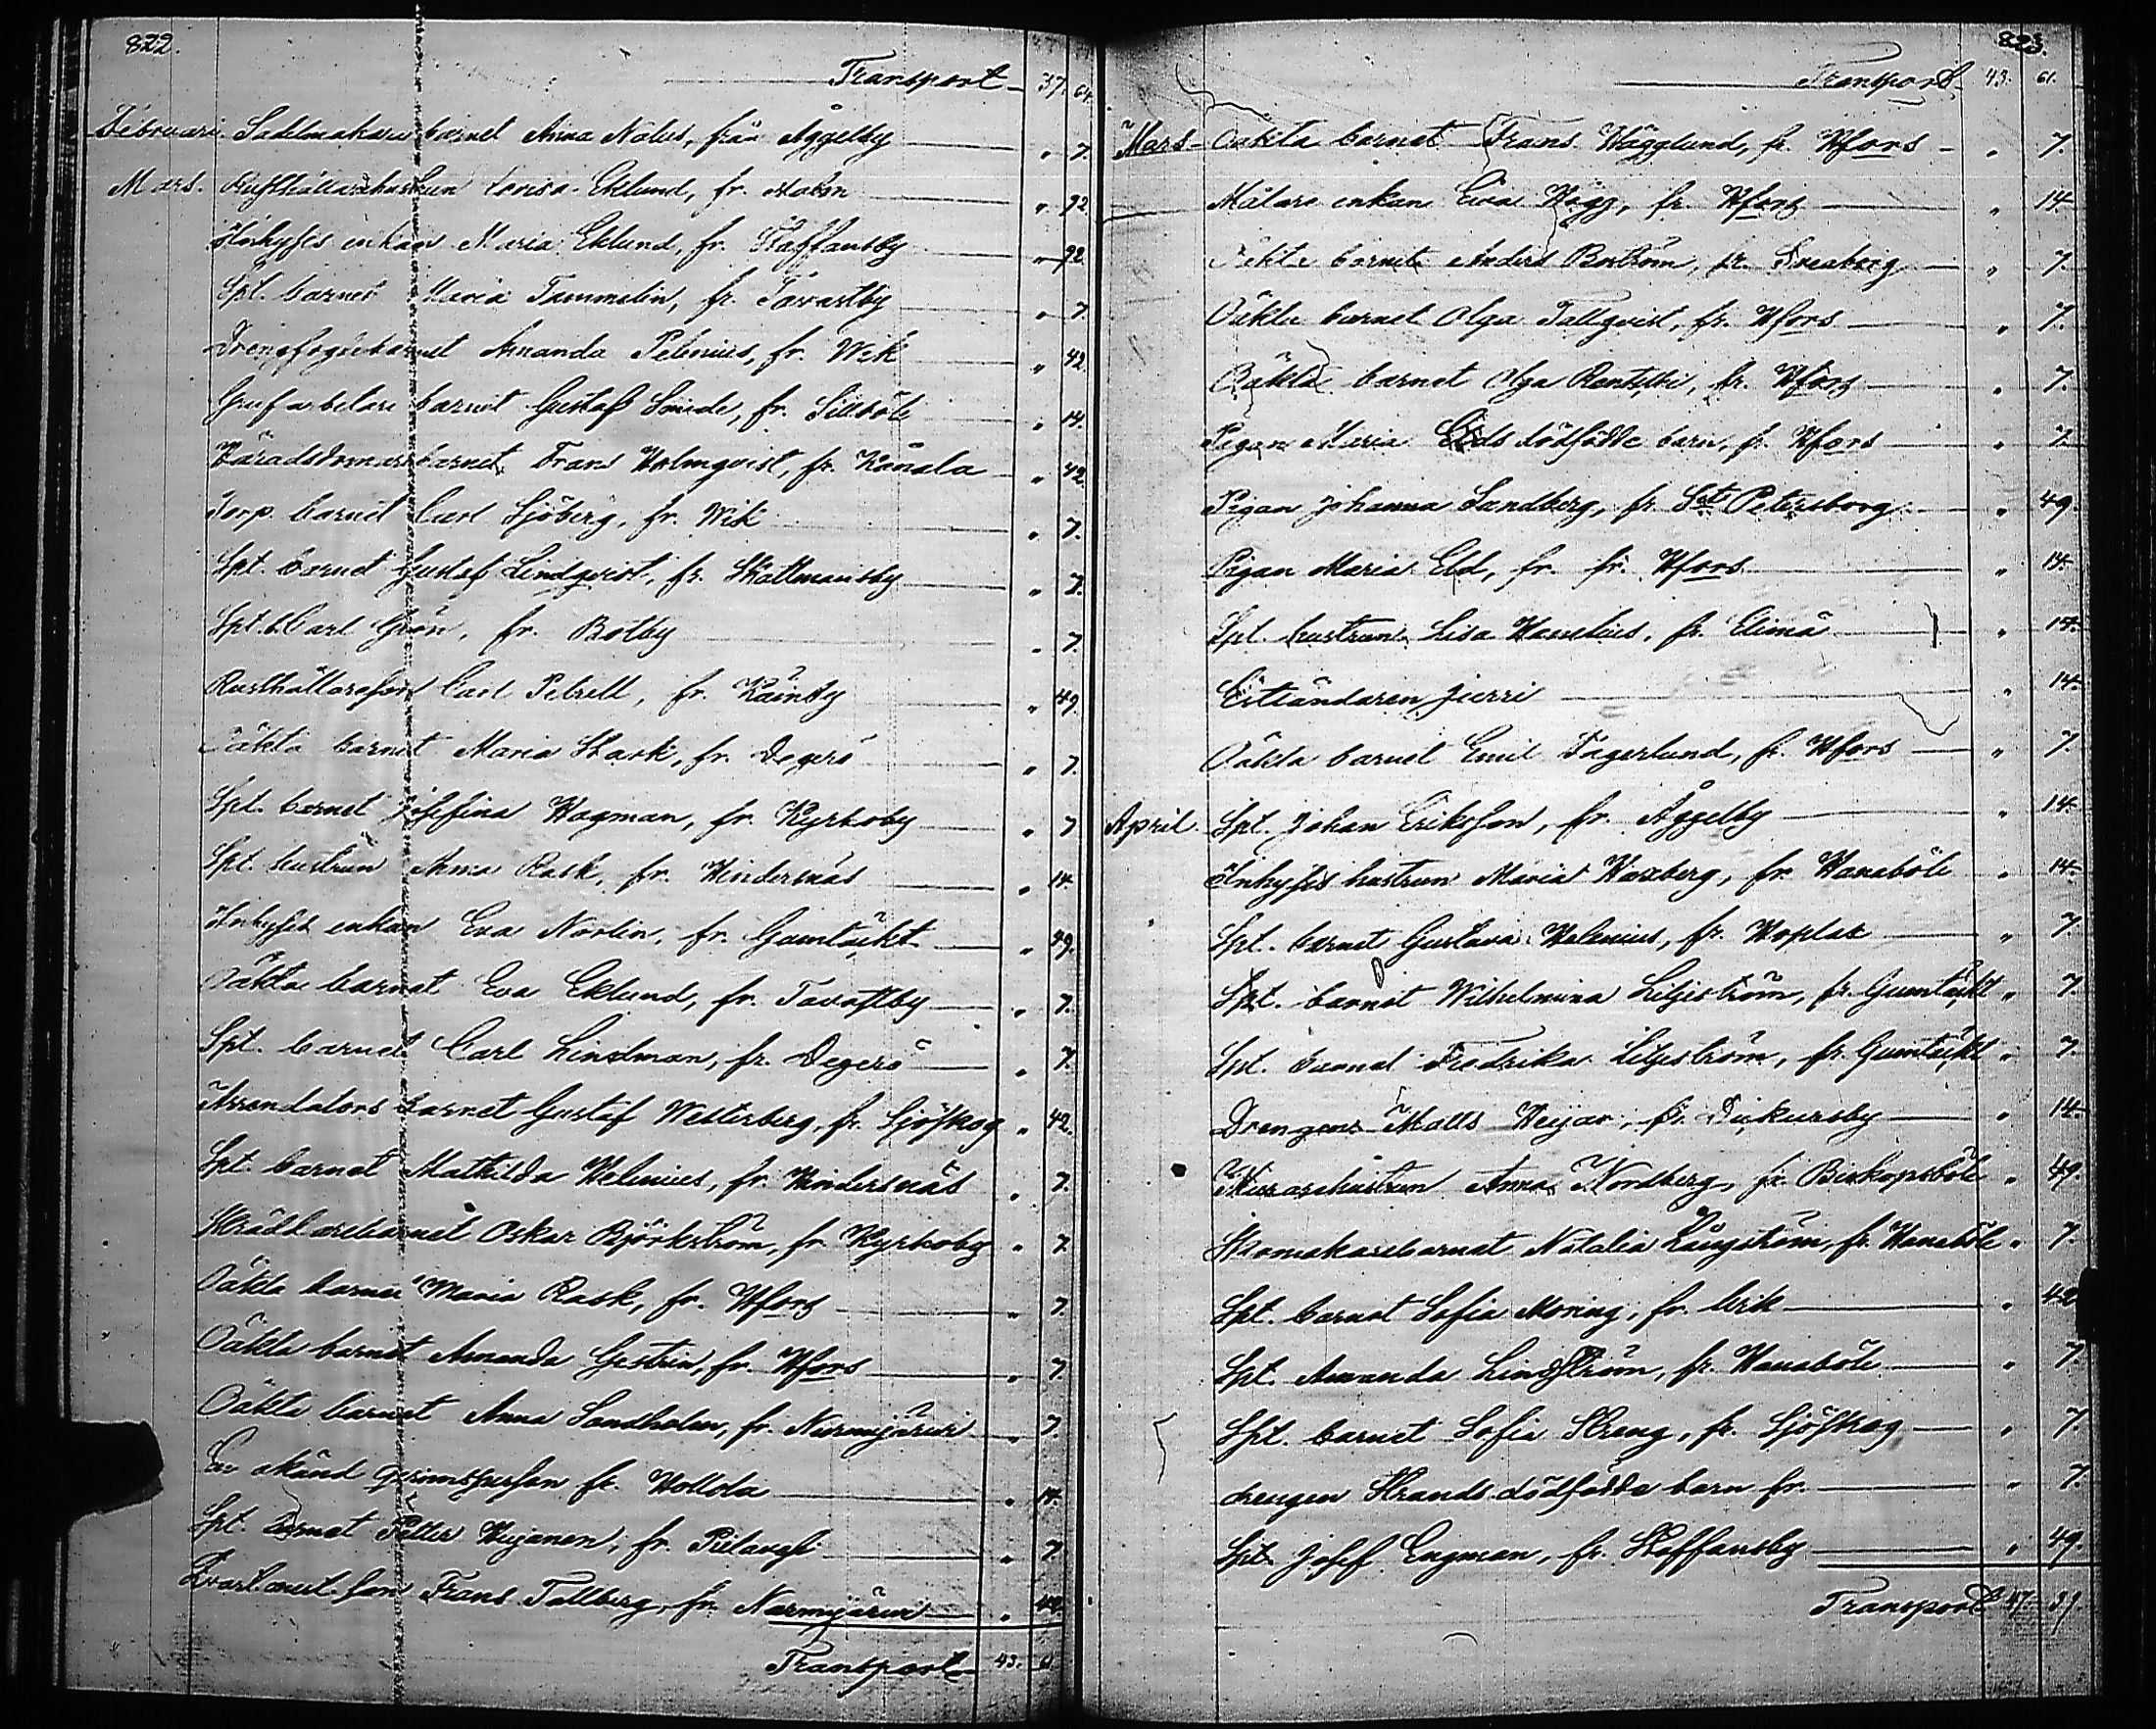 822.
Transport 37. 64.
Februari Sadelmakare barnet Anna Nolus, från Åggelby " 7.
Mars. Rusthållarehustrun Lovisa Eklund, fr. Malm " 92
Inhyses enkan Maria Eklund, fr. Staffansby " 92
Spt. barnet Maria Tammelin, fr. Tavastby " 7.
Drengfogdebarnet Amanda Pelenius, fr. Wik " 42
Grufarbetare barnet Gustaf Smide, fr. Sillböle " 14.
Häradsdomarebarnet Frans Holmqvist, fr. Kånala " 42.
Torp. barnet Carl Sjöberg, fr. Wik " 7.
Spt. barnet Gustaf Lindqvist, fr. Skattmansby " 7.
Spt. b. Carl Grön, fr. Botby " 7.
Rusthållareson Carl Petrell, fr. Kåinby " 49.
Oäkta barnet Maria Stark, fr. Degerö " 7.
Spt. barnet Josefina Hagman, fr. Kyrkoby " 7
Spt. hustrun Anna Rask, fr. Hindersnäs " 14.
Inhyses enkan Eva Norlin, fr. Gumtäkt " 49.
Oäkta barnet Eva Eklund, fr. Tavastby " 7.
Spt. barnet Carl Lindman, fr. Degerö " 7.
Arrendators barnet Gustaf Westerberg, fr. Sjöskog " 42.
Spt. barnet Mathilda Helenius, fr. Hindersnäs " 7.
Skräddarebarnet Oskar Björkström, fr. Kyrkoby " 7.
Oäkta barnet Maria Rask, fr. Hfors " 7.
Oäkta barnet Amanda Gestrin, fr. Hfors " 7
Oäkta barnet Anna Sandholm, fr. Nurmijärvi " 7.
En okänd qvinnsperson fr. Hollola " 14.
Spt. barnet Petter Heijanen, fr. Pielavesi " 7.
Qvartermest. son Frans Tallberg, fr. Nurmijärvi " 42.
Transport 43. 61.
823.
Transport 43. 61.
Mars Oäkta barnet Frans Hägglund, fr. Hfors " 7.
Målare enkan Eva Hägg, fr. Hfors " 14
Oäkta barnet Anders Boström, fr. Sveaborg " 7.
Oäkta barnet Olga Tallqvist, fr. Hfors " 7.
Oäkta barnet Olga Rantsi, fr. Hfors " 7.
Pigan Maria Elds dödfödde barn, fr. Hfors " 7.
Pigan Johanna Sandberg, fr. Sct Petersborg " 49.
Pigan Maria Eld, fr. fr. Hfors " 14.
Spt. hustrun Lisa Hanelius, fr. Elimä " 14.
Estländaren Jürri " 14.
Oäkta barnet Emil Fagerlund, fr. Hfors " 7
April. Spt. Johan Eriksson, fr. Åggelby " 14.
Inhyses hustrun Maria Waxberg, fr. Hanaböle " 14.
Spt. barnet Gustava Helenius, fr. Hoplax " 7
Spt. barnet Wilhelmina Liljeström, fr. Gumtäkt " 7.
Spt. barnet Fredrika Liljeström, fr. Gumtäkt " 7.
Drengens Matts Heijar, fr. Dickursby " 14
Murarehustrun Anna Nordberg, fr. Biskopsböle " 49.
Skomakarebarnet Natalia Långström, fr. Hanaböle " 7.
Spt. barnet Sofia Moring, fr. Wik " 42
Spt. Amanda Lindström, fr. Hanaböle " 7.
Spt. barnet Sofia Streng, fr. Sjöskog " 7.
drengen Strands dödfödda barn fr. " 7.
Spt. Josef Engman, fr. Staffansby " 49.
Transport 47. 39.